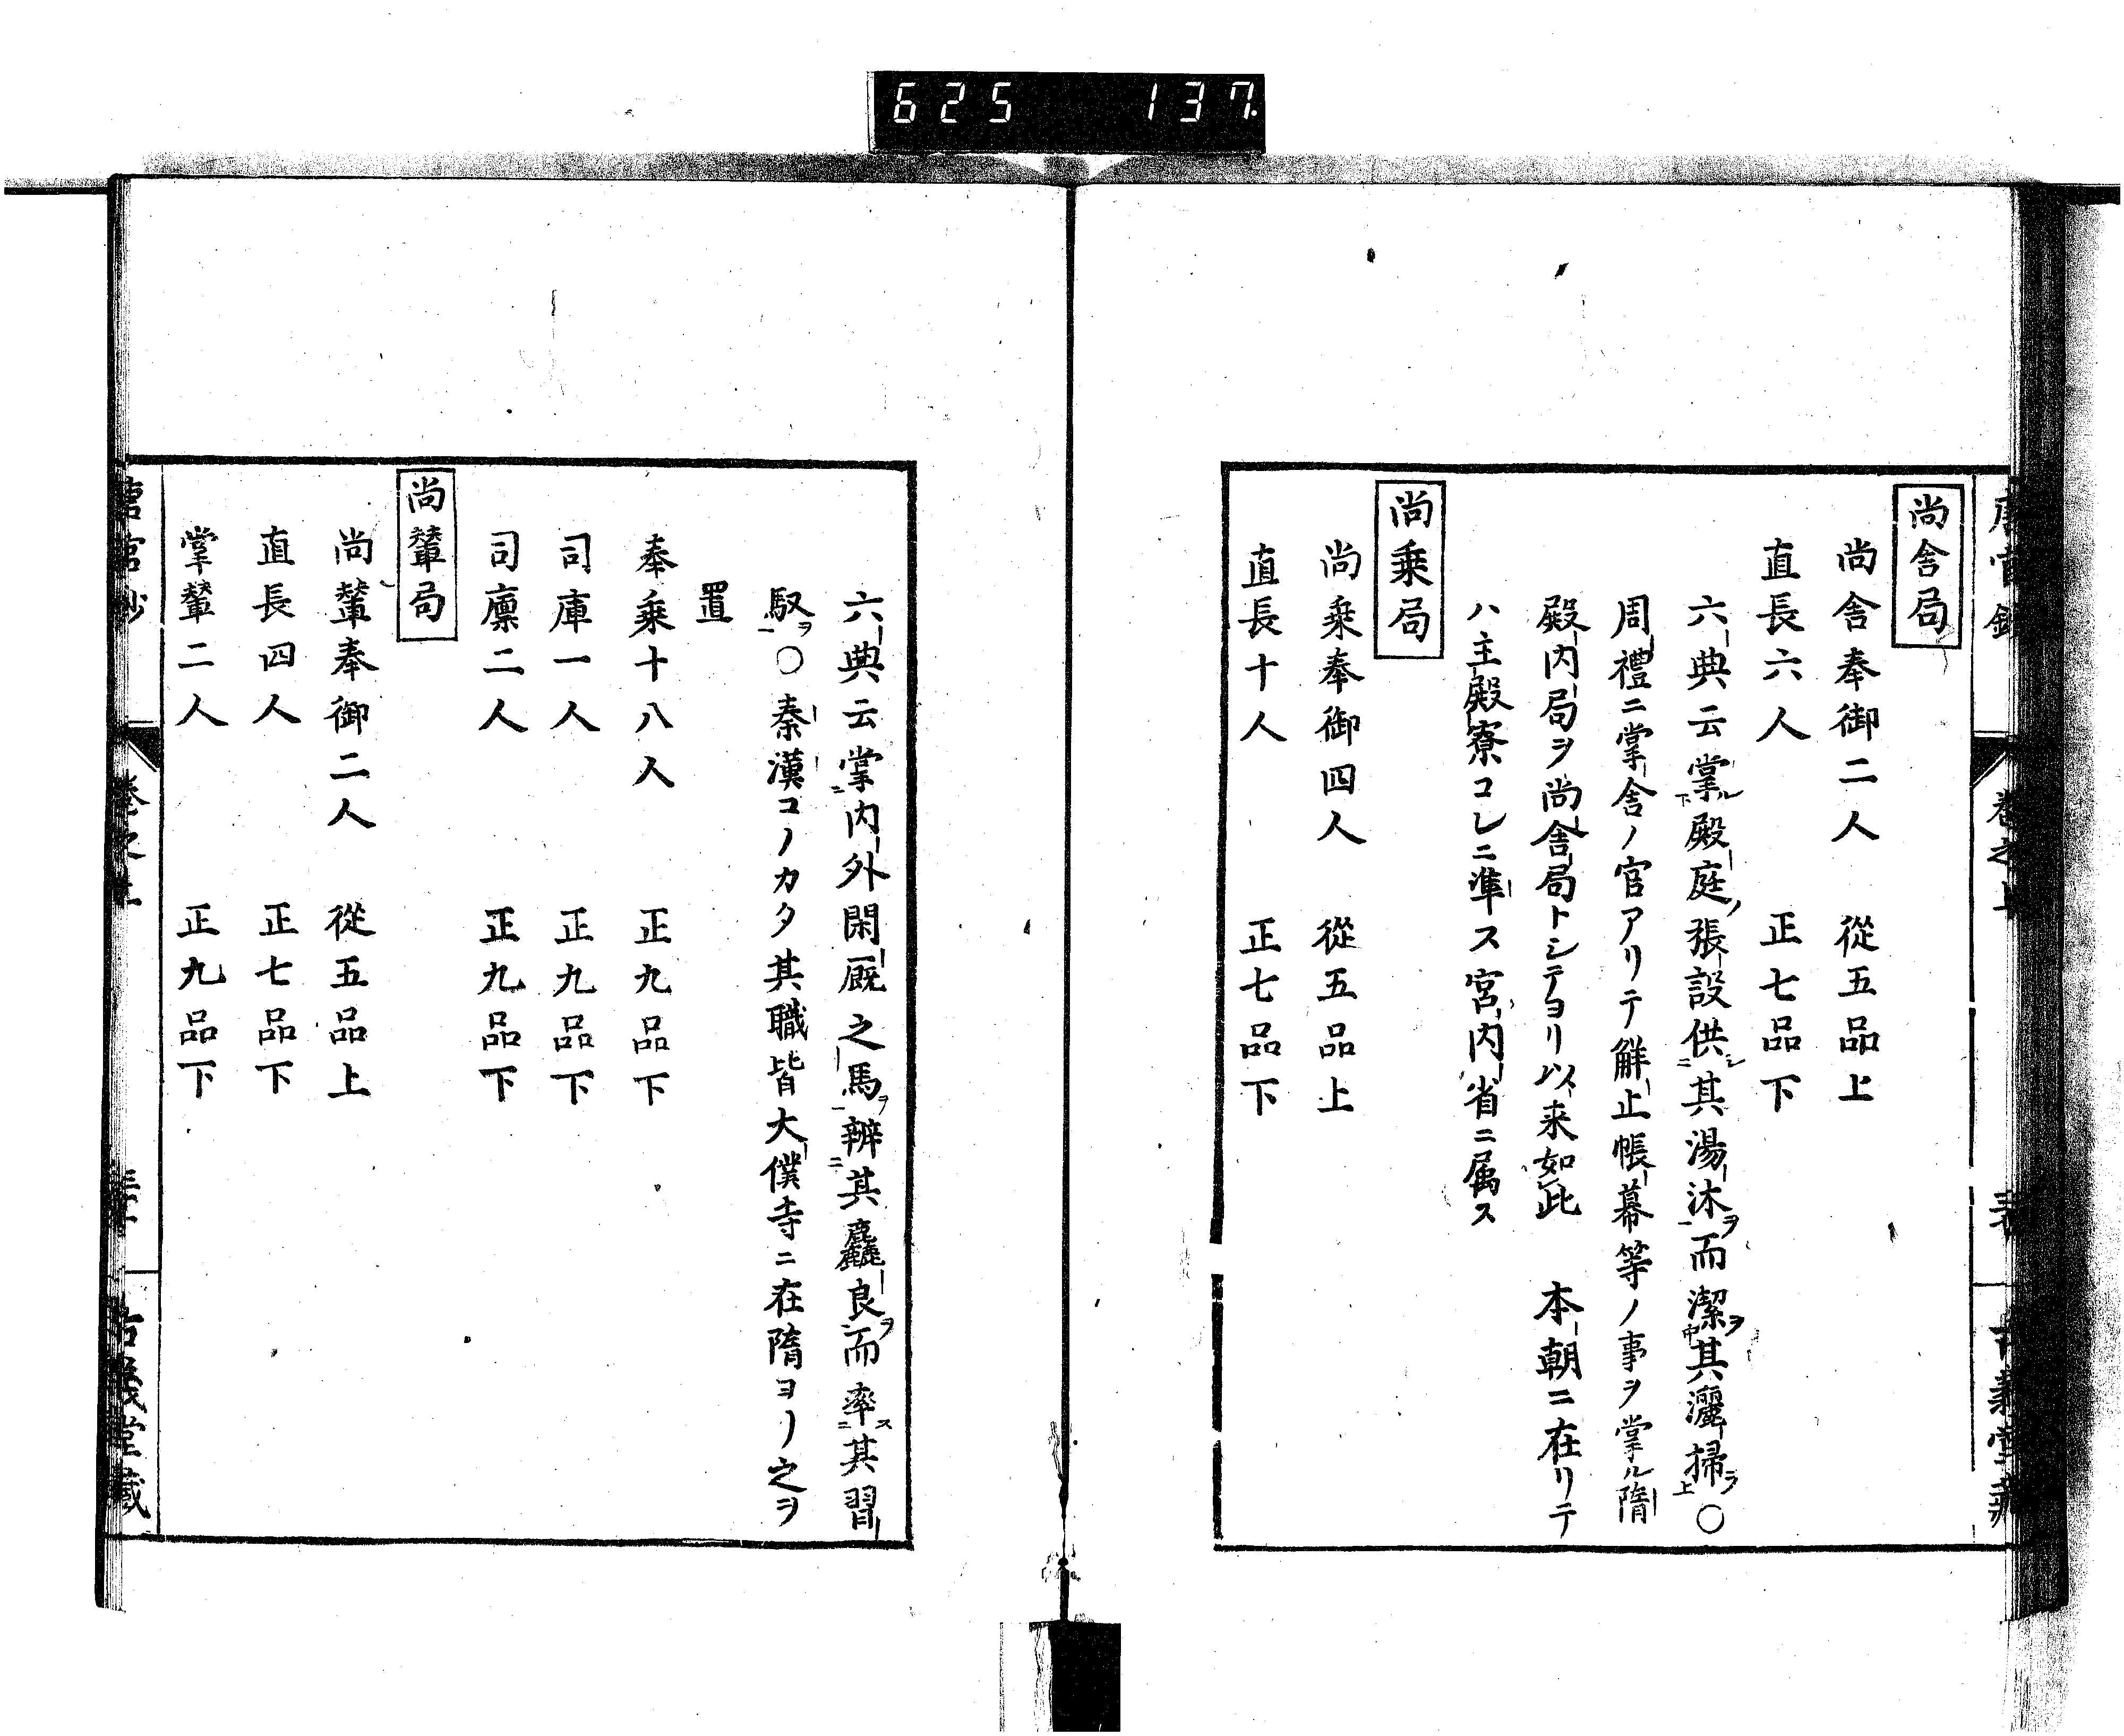 625 137
尚舎局
尚舎奉御二人 從五品上
直長六人 正七品下
六典云掌ル下殿庭ノ張設供シ二其湯沐ヲ一而潔ヲ中其灑掃ヲ上〇
周禮ニ掌舎ノ官アリテ觧止帳幕等ノ事ヲ掌ル隋
殿内局ヲ尚舎局トシテヨリ以来如此 本朝ニ在リテ
ハ主殿寮コレニ準ス宮内省ニ属ス
尚乗局
尚乗奉御四人 從五品上
直長十人 正七品下
六典云掌二内外閑厩之馬ヲ一辧二其麤良ヲ而率ス二其習
馭ヲ一〇秦漢コノカタ其職皆大僕寺ニ在隋ヨリ之ヲ
置
奉乗十八人 正九品下
司庫一人 正九品下
司廪二人 正九品下
尚輦局
尚輦奉御二人 從五品上
直長四人 正七品下
掌輦二人 正九品下
古義堂藏